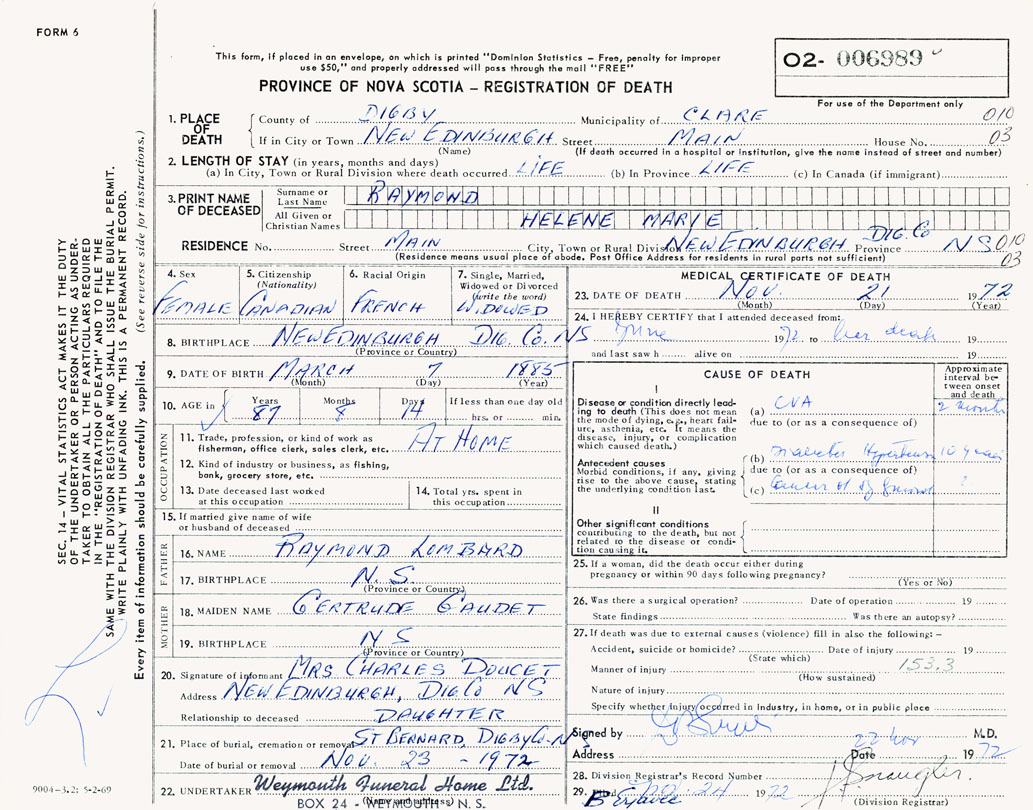 FORM 6
This form, if placed in an envelope, on which is printed "Dominion Statistics – Free, penalty for improper
use $50," and properly addressed will pass through the mail "FREE"
PROVINCE OF NOVA SCOTIA – REGISTRATION OF DEATH
O2- 006989
For use of the Department only
1. PLACE OF DEATH
County of DIGBY Municipality of CLARE 010
If in City or Town NEW EDINBURGH Street MAIN House No. 03
(Name) (If death occurred in a hospital or institution, give the name instead of street and number)
2. LENGTH OF STAY (in years, months and days)
(a) In City, Town or Rural Division where death occurred LIFE (b) In Province LIFE (c) In Canada (if immigrant)
3. PRINT NAME OF DECEASED
Surname or Last Name RAYMOND
All Given or Christian Names HELENE MARIE
DIG. Co
RESIDENCE No. Street MAIN City, Town or Rural Division NEW EDINBURGH Province N S 010
(Residence means usual place of abode. Post Office Address for residents in rural parts not sufficient) 03
4. Sex
FEMALE
5. Citizenship
(Nationality)
CANADIAN
6. Racial Origin
FRENCH
7. Single, Married,
Widowed or Divorced
(write the word)
WIDOWED
8. BIRTHPLACE NEW EDINBURGH DIG. Co. NS
(Province or Country)
9. DATE OF BIRTH MARCH 7 1885
(Month) (Day) (Year)
10. AGE in
Years Months Days If less than one day old
87 8 14 hrs. or min.
OCCUPATION
11. Trade, profession, or kind of work as
fisherman, office clerk, sales clerk, etc. AT HOME
12. Kind of industry or business, as fishing,
bank, grocery store, etc.
13. Date deceased last worked
at this occupation
14. Total yrs. spent in
this occupation
15. If married give name of wife
or husband of deceased
FATHER
16. NAME RAYMOND LOMBARD
17. BIRTHPLACE N. S.
(Province or Country)
MOTHER
18. MAIDEN NAME GERTRUDE GAUDET
19. BIRTHPLACE N S
(Province or Country)
20. Signature of informant MRS CHARLES DOUCET
Address NEW EDINBURGH, DIG Co NS
Relationship to deceased DAUGHTER
21. Place of burial, cremation or removal ST BERNARD, DIGBY Co - N S
Date of burial or removal NOV. 23 - 1972
22. UNDERTAKER Weymouth Funeral Home Ltd.
(Name and address)
BOX 24 - WEYMOUTH, N. S.
MEDICAL CERTIFICATE OF DEATH
23. DATE OF DEATH NOV. 21 1972
(Month) (Day) (Year)
24. I HEREBY CERTIFY that I attended deceased from:
June 1972 to her death 19
and last saw h alive on 19
CAUSE OF DEATH
Approximate
interval be-
tween onset
and death
I
Disease or condition directly lead-
ing to death (This does not mean
the mode of dying, e.g., heart fail-
ure, asthenia, etc. It means the
disease, injury, or complication
which caused death.)
(a) CVA 2 months
due to (or as a consequence of)
Antecedent causes
Morbid conditions, if any, giving
rise to the above cause, stating
the underlying condition last.
(b) Diabetes Hypertension 10 years
due to (or as a consequence of)
(c) Cancer of ?
II
Other significant conditions
contributing to the death, but not
related to the disease or condi-
tion causing it.
25. If a woman, did the death occur either during
pregnancy or within 90 days following pregnancy?
(Yes or No)
26. Was there a surgical operation? Date of operation 19
State findings Was there an autopsy?
27. If death was due to external causes (violence) fill in also the following: –
Accident, suicide or homicide? Date of injury 19
(State which) 153.3
Manner of injury
(How sustained)
Nature of injury
Specify whether injury occurred in Industry, in home, or in public place
Signed by M.D.
Address Date 22 Nov 1972
28. Division Registrar's Record Number
29. Filed Nov. 24 1972
(Division Registrar)
SEC. 14 – VITAL STATISTICS ACT MAKES IT THE DUTY
OF THE UNDERTAKER OR PERSON ACTING AS UNDER-
TAKER TO OBTAIN ALL THE PARTICULARS REQUIRED
IN THE "REGISTRATION OF DEATH" AND TO FILE THE
SAME WITH THE DIVISION REGISTRAR WHO SHALL ISSUE THE BURIAL PERMIT.
WRITE PLAINLY WITH UNFADING INK. THIS IS A PERMANENT RECORD.
Every item of information should be carefully supplied. (See reverse side for instructions.)
9004-3.2: 5-2-69